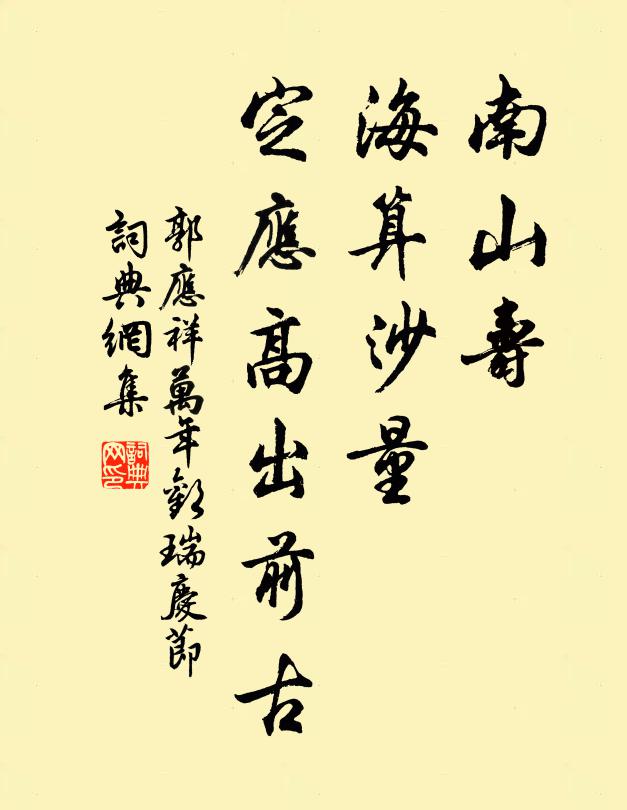 南山壽
海算沙量
定應高出前古
郭應祥萬年歡瑞慶節
詞典網集
詞典網印